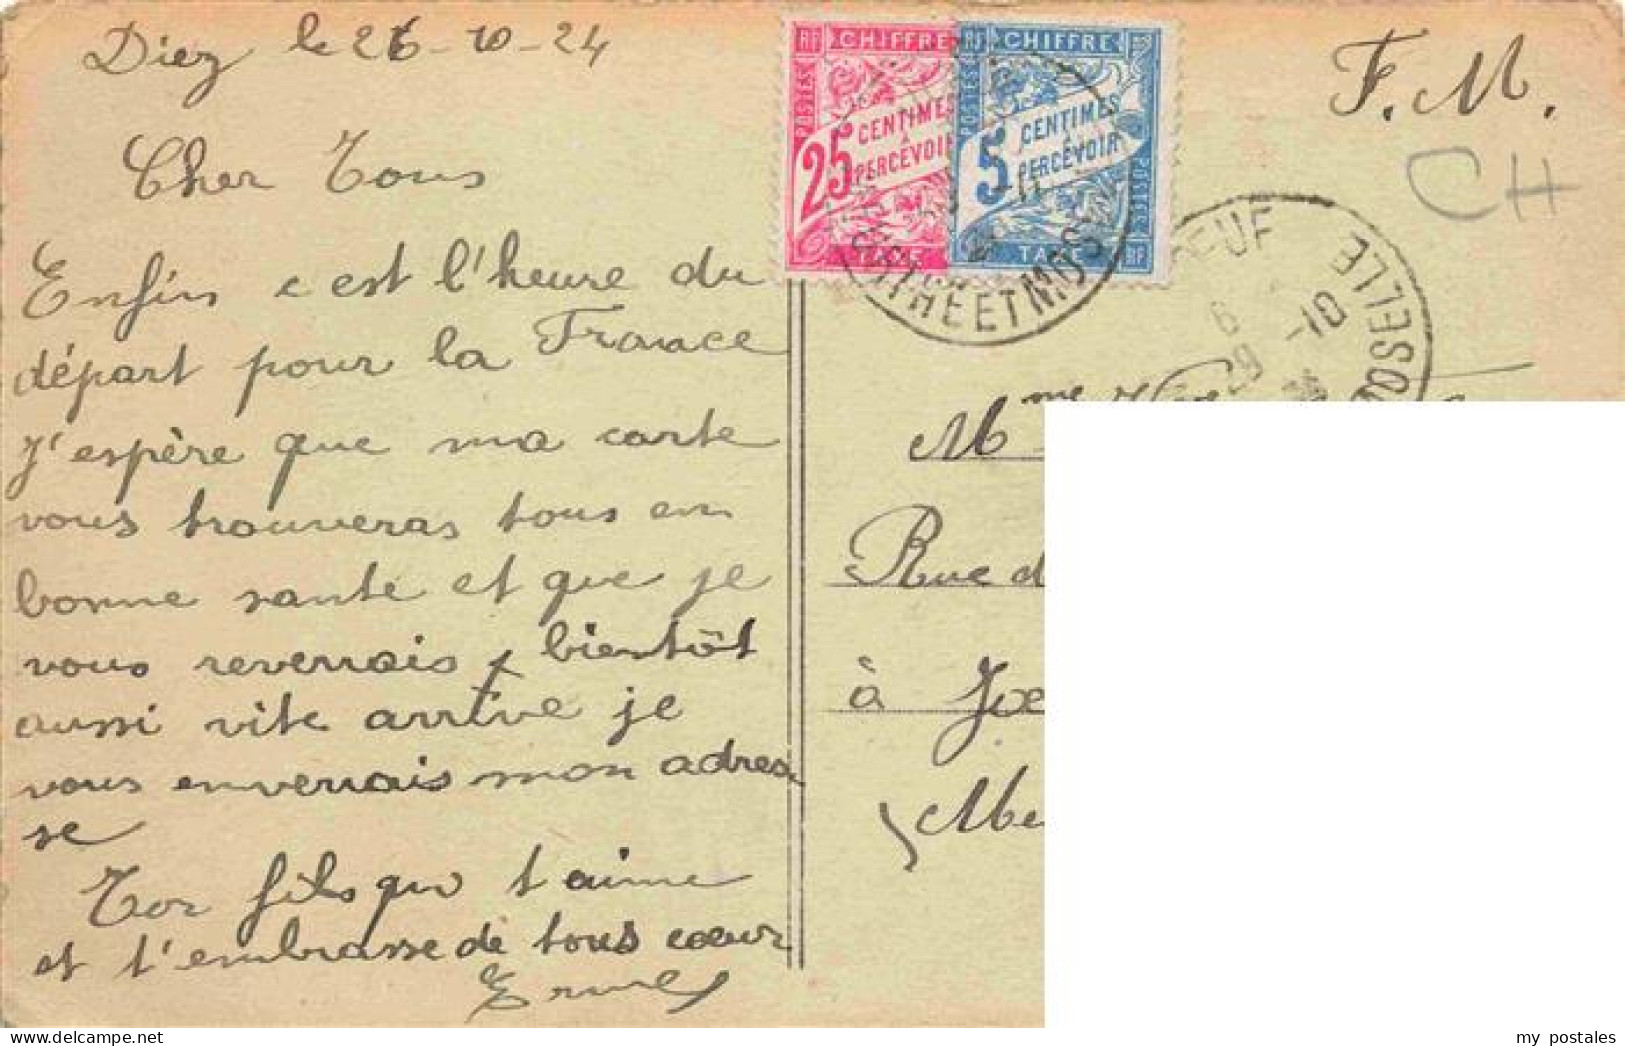 Diez le 26-10-24
F.M.
CH
Cher Tous
Enfin c'est l'heure du
départ pour la France
J'espère que ma carte
vous trouveras tous en
bonne santé et que je
vous reverrais bientôt
aussi vite arrive je
vous enverrais mon adres-
se
Ton fils qui t'aime
et t'embrasse de tous cœur
RF CHIFFRE
POSTES
25 CENTIMES
PERCEVOIR
TAXE
CHIFFRE
POSTES
5 CENTIMES
À PERCEVOIR
TAXE RF
RTHE ET MOS
OEUF
MOSELLE
29 -10
Mme
Rue d
à Jœ
delcampe.net
my_postales